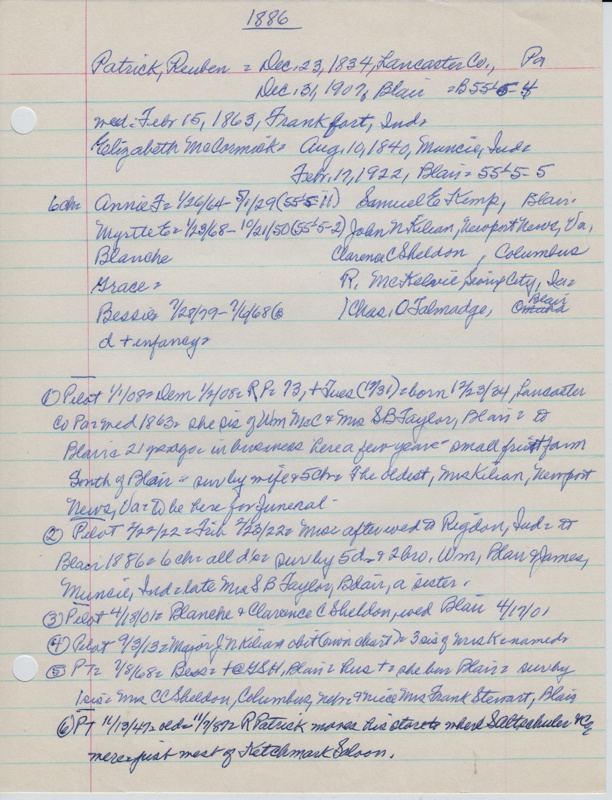 1886
Patrick, Reuben = Dec. 23, 1834, Lancaster Co., Pa
Dec. 31, 1907, Blair = B55-5-4
wed: Feb 15, 1863, Frankfort, Ind=
Elizabeth McCormick= Aug. 10, 1840, Muncie, Ind=
Feb. 17, 1922, Blair= 55-5-5
6ch= Annie F= 1/26/64- 5/1/29(55-5-11) Samuel E Kemp, Blair=
Myrtle E= 1/23/68- 10/21/50(55-5-2) John N Kilian, Newport News, Va,
Blanche Clarence C Sheldon, Columbus
Grace= R. McKelvie, Ia=
Bessie= 7/28/79- 7/6/68( ) Chas. O Talmadge, Blair
d + infancy=
① Pilot 1/1/08= Dem 1/2/08= R P= 73, + Tues (12/31)= born 12/23/34, Lancaster
Co Pa= wed 1863= she sis of Wm McC & Mrs S B Taylor, Blair= to
Blair= 21 yrs ago= in business here a few years= small fruit farm
South of Blair= sur by wife & 5ch= the oldest, Mrs Kilian, Newport
News, Va= to be here for funeral=
② Pilot 2/22/22= Trib 2/23/22= Mrs= after wed to Rigdon, Ind= to
Blair 1886= 6 ch= all d's= sur by 5 d= & 2 bro. Wm, Blair & James,
Muncie, Ind= late Mrs S B Taylor, Blair, a sister.
③ Pilot 4/18/01= Blanche & Clarence C Sheldon, wed Blair 4/17/01
④ Pilot 9/3/13= Major J N Kilian obit (own chart)= 3 sis of Mrs K named=
⑤ PT= 7/8/68= Bess= + @ Blair= hus + she bur Blair= sur by
1 sis= Mrs C C Sheldon, Columbus, Nebr= & niece Mrs Frank Stewart, Blair
⑥ PT 11/13/47= R Patrick moves his store to where Saltschuler & Co
were= just west of Ketchmark Saloon.